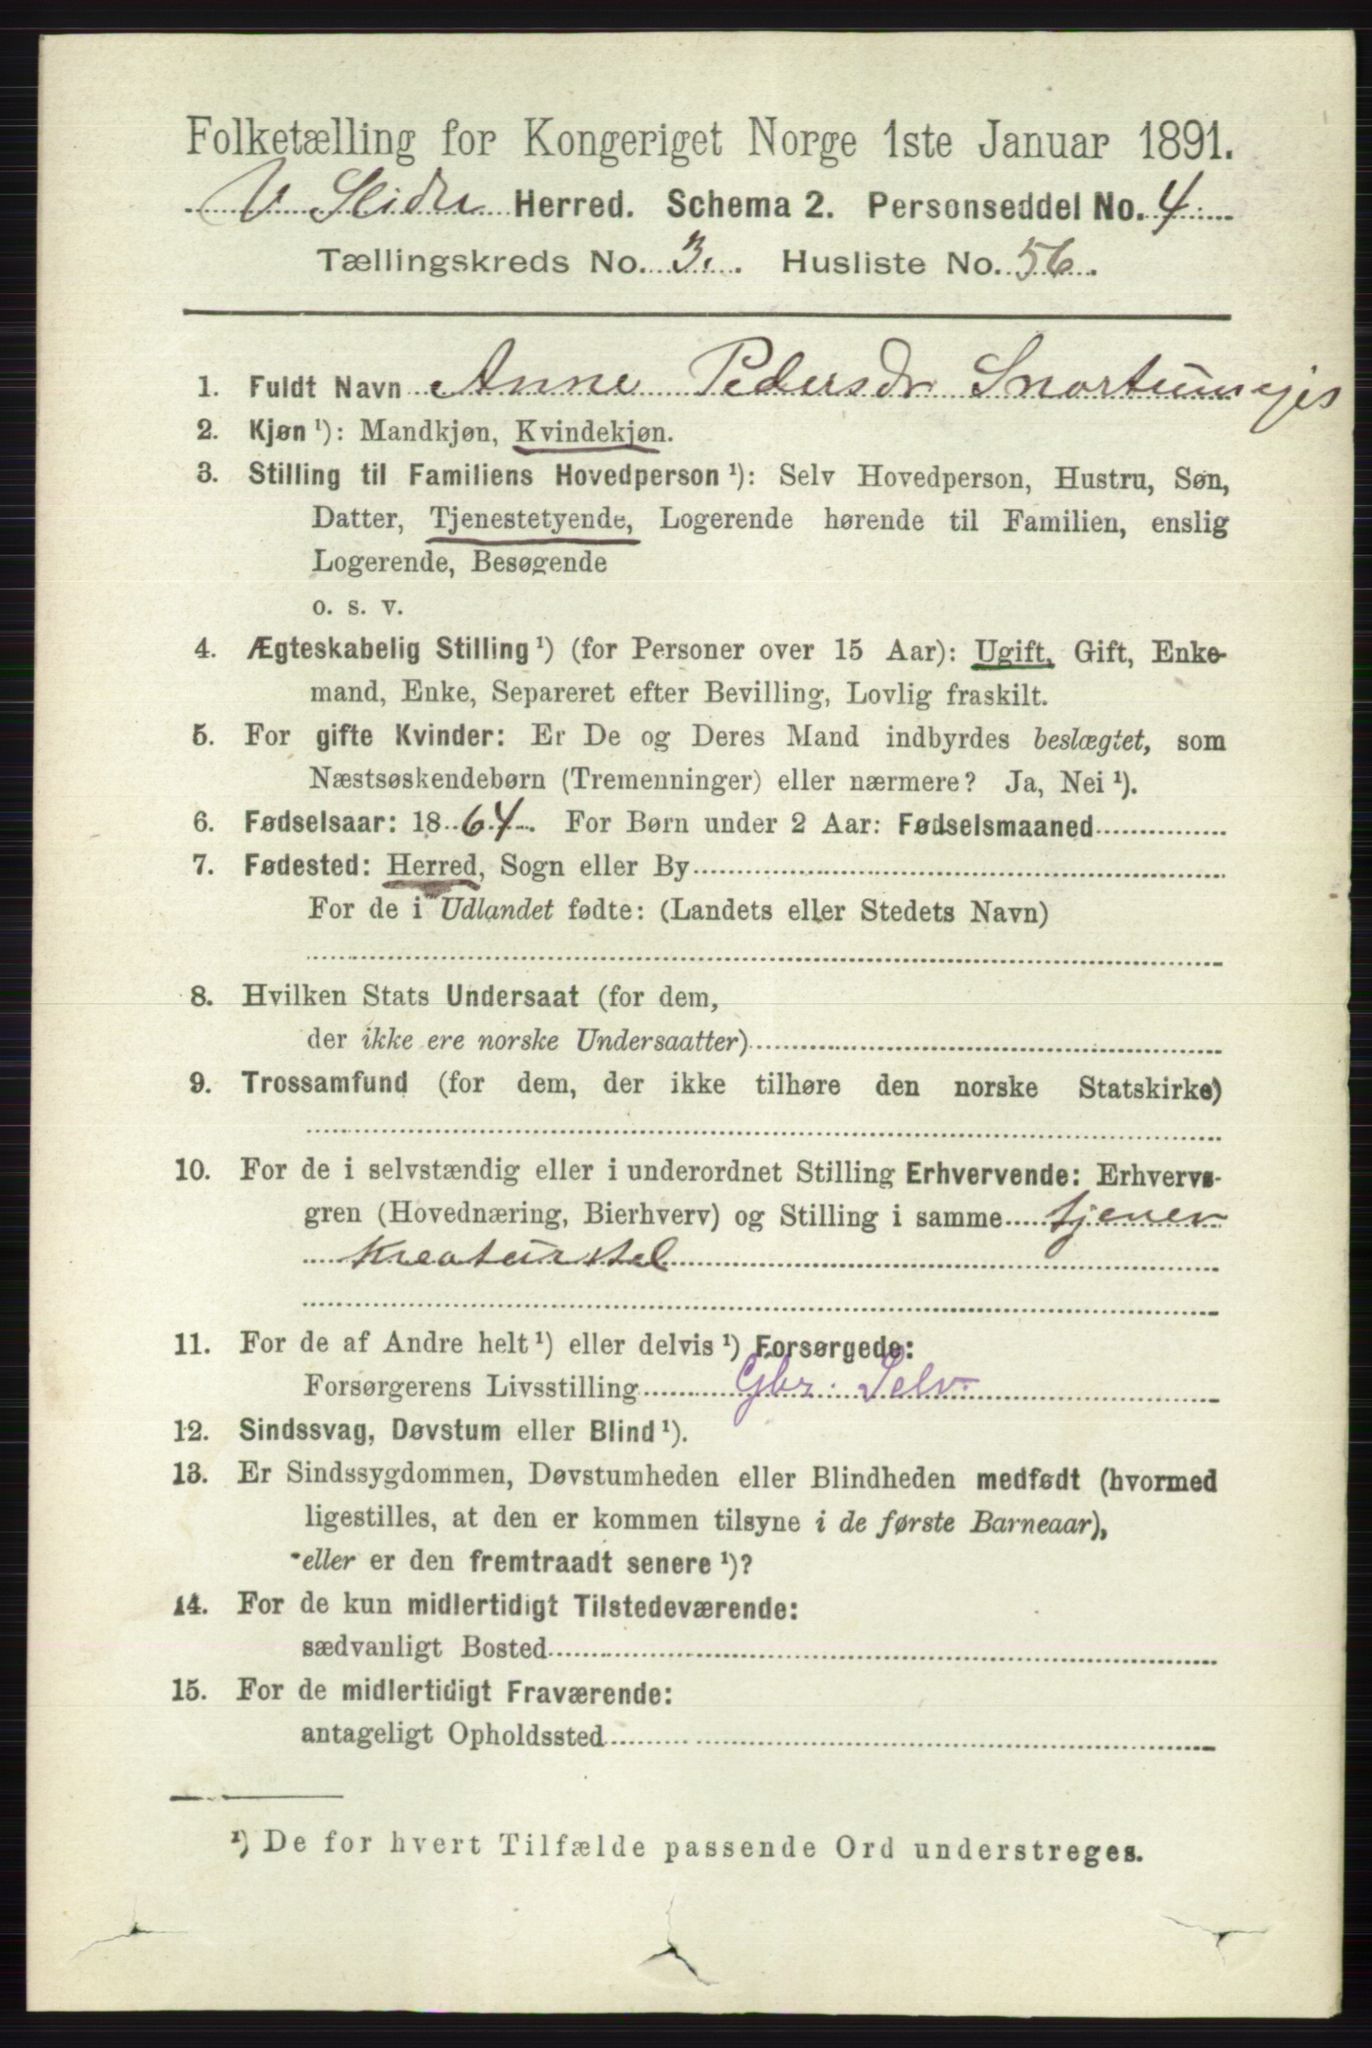 Folketælling for Kongeriget Norge 1ste Januar 1891.
V Slidre Herred. Schema 2. Personseddel No. 4
Tællingskreds No. 3. Husliste No. 56.
1. Fuldt Navn Anne Pedersdr Snortumsejes
2. Kjøn ¹): Mandkjøn, Kvindekjøn.
3. Stilling til Familiens Hovedperson ¹): Selv Hovedperson, Hustru, Søn,
Datter, Tjenestetyende, Logerende hørende til Familien, enslig
Logerende, Besøgende
o. s. v.
4. Ægteskabelig Stilling ¹) (for Personer over 15 Aar): Ugift, Gift, Enke-
mand, Enke, Separeret efter Bevilling, Lovlig fraskilt.
5. For gifte Kvinder: Er De og Deres Mand indbyrdes beslægtet, som
Næstsøskendebørn (Tremenninger) eller nærmere? Ja, Nei ¹).
6. Fødselsaar: 1864. For Børn under 2 Aar: Fødselsmaaned
7. Fødested: Herred, Sogn eller By
For de i Udlandet fødte: (Landets eller Stedets Navn)
8. Hvilken Stats Undersaat (for dem,
der ikke ere norske Undersaatter)
9. Trossamfund (for dem, der ikke tilhøre den norske Statskirke)
10. For de i selvstændig eller i underordnet Stilling Erhvervende: Erhvervs-
gren (Hovednæring, Bierhverv) og Stilling i samme tjener
Kreaturstel
11. For de af Andre helt ¹) eller delvis ¹) Forsørgede:
Forsørgerens Livsstilling Gbr. Selv.
12. Sindssvag, Døvstum eller Blind ¹).
13. Er Sindssygdommen, Døvstumheden eller Blindheden medfødt (hvormed
ligestilles, at den er kommen tilsyne i de første Barneaar),
eller er den fremtraadt senere ¹)?
14. For de kun midlertidigt Tilstedeværende:
sædvanligt Bosted
15. For de midlertidigt Fraværende:
antageligt Opholdssted
¹) De for hvert Tilfælde passende Ord understreges.